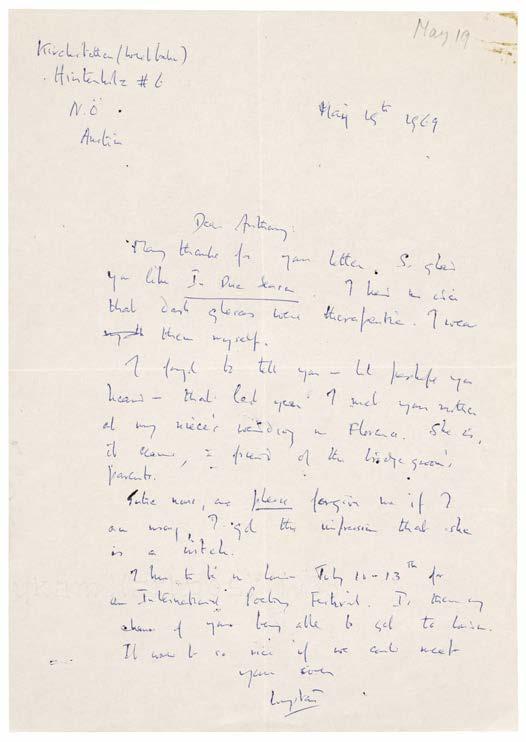 May 19
Kirchstetten (Westbahn)
Hinterholz # 6
N.Ö.
Austria
May 19th 1969
Dear Anthony:
Many thanks for your letter. So glad
you like In Due Season. I had no idea
that dark glasses were therapeutic. I wear
them myself.
I forgot to tell you – but perhaps you
heard – that last year I met your mother
at my niece's wedding in Florence. She is,
it seems, a friend of the bridge groom's
parents.
Entre nous, and please forgive me if I
am wrong, I got the impression that she
is a witch.
I have to be in London July 11-13th for
an International Poetry Festival. Is there any
chance of your being able to get to London.
It would be so nice if we could meet
yours ever
Wystan